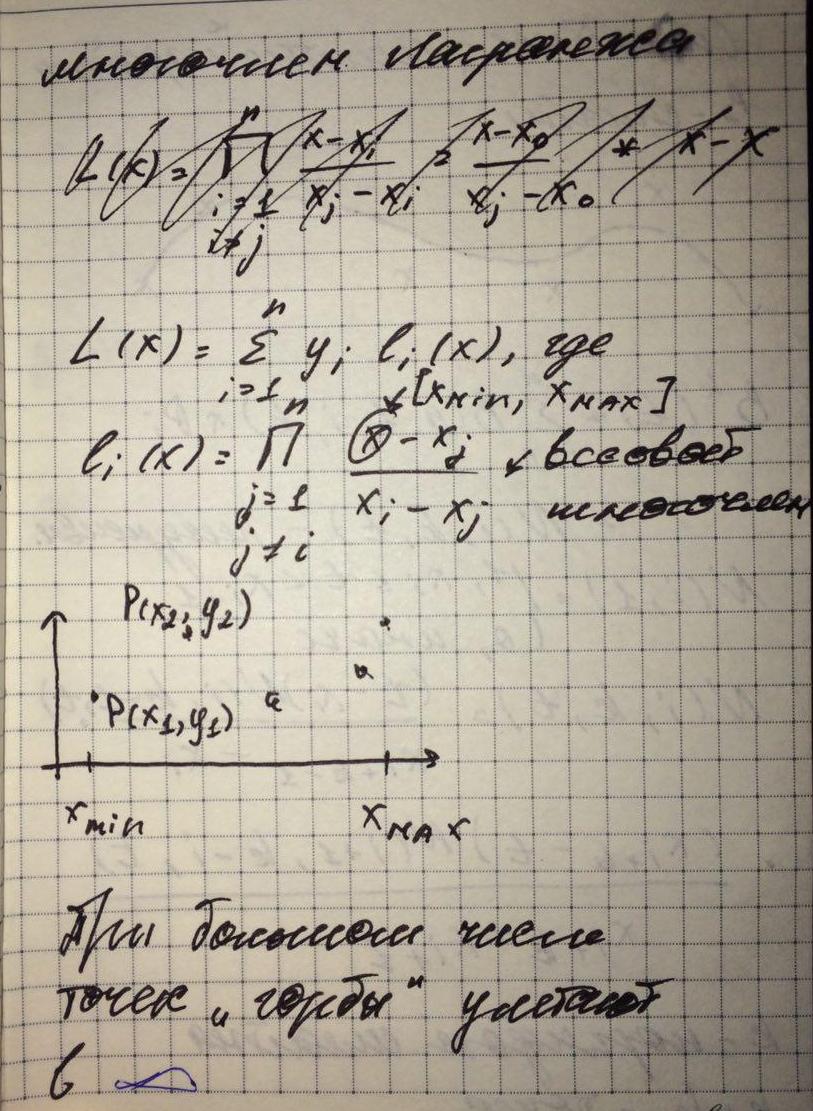 многочлен Лагранжа
L(x) = ∏ n i=1 i≠j (x-xi)/(xj-xi) = (x-x0)/(xj-x0) * x-x
L(x) = Σ n i=1 yi li(x), где
[xmin, xMAX]
li(x) = ∏ n j=1 j≠i (x-xj)/(xi-xj) ↙ весовой
многочлен
P(x2, y2)
P(x1, y1)
xmin xMAX
При большом числе
точек „горбы“ улетают
в